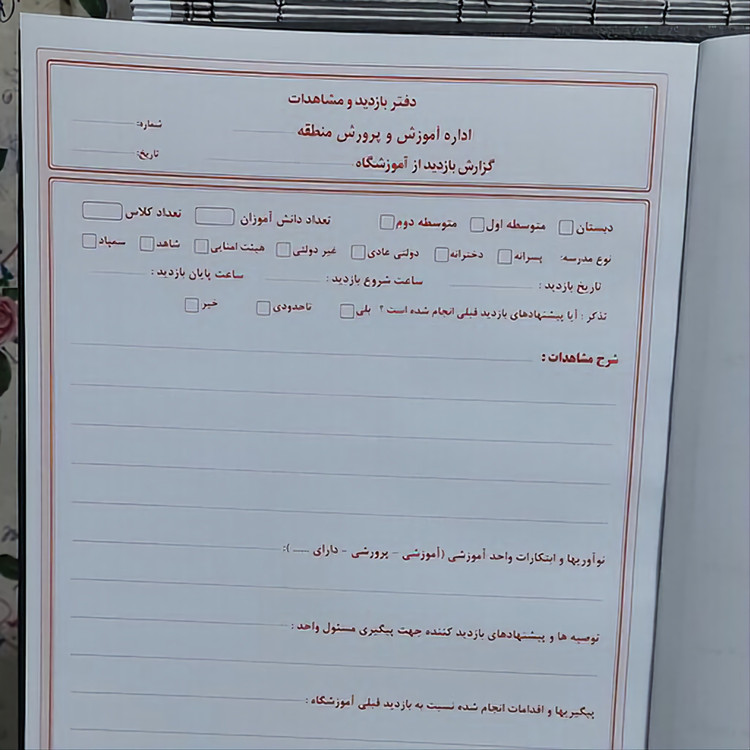 دفتر بازدید و مشاهدات
اداره آموزش و پرورش منطقه
شماره:
گزارش بازدید از آموزشگاه
تاریخ:
دبستان متوسطه اول متوسطه دوم تعداد دانش آموزان تعداد کلاس
نوع مدرسه: پسرانه دخترانه دولتی عادی غیر دولتی هیئت امنایی شاهد سمپاد
تاریخ بازدید : ساعت شروع بازدید : ساعت پایان بازدید :
تذکر : آیا پیشنهادهای بازدید قبلی انجام شده است ؟ بلی تاحدودی خیر
شرح مشاهدات :
نوآوریها و ابتکارات واحد آموزشی (آموزشی - پرورشی - دارای ___ ):
توصیه ها و پیشنهادهای بازدید کننده جهت پیگیری مسئول واحد :
پیگیریها و اقدامات انجام شده نسبت به بازدید قبلی آموزشگاه :